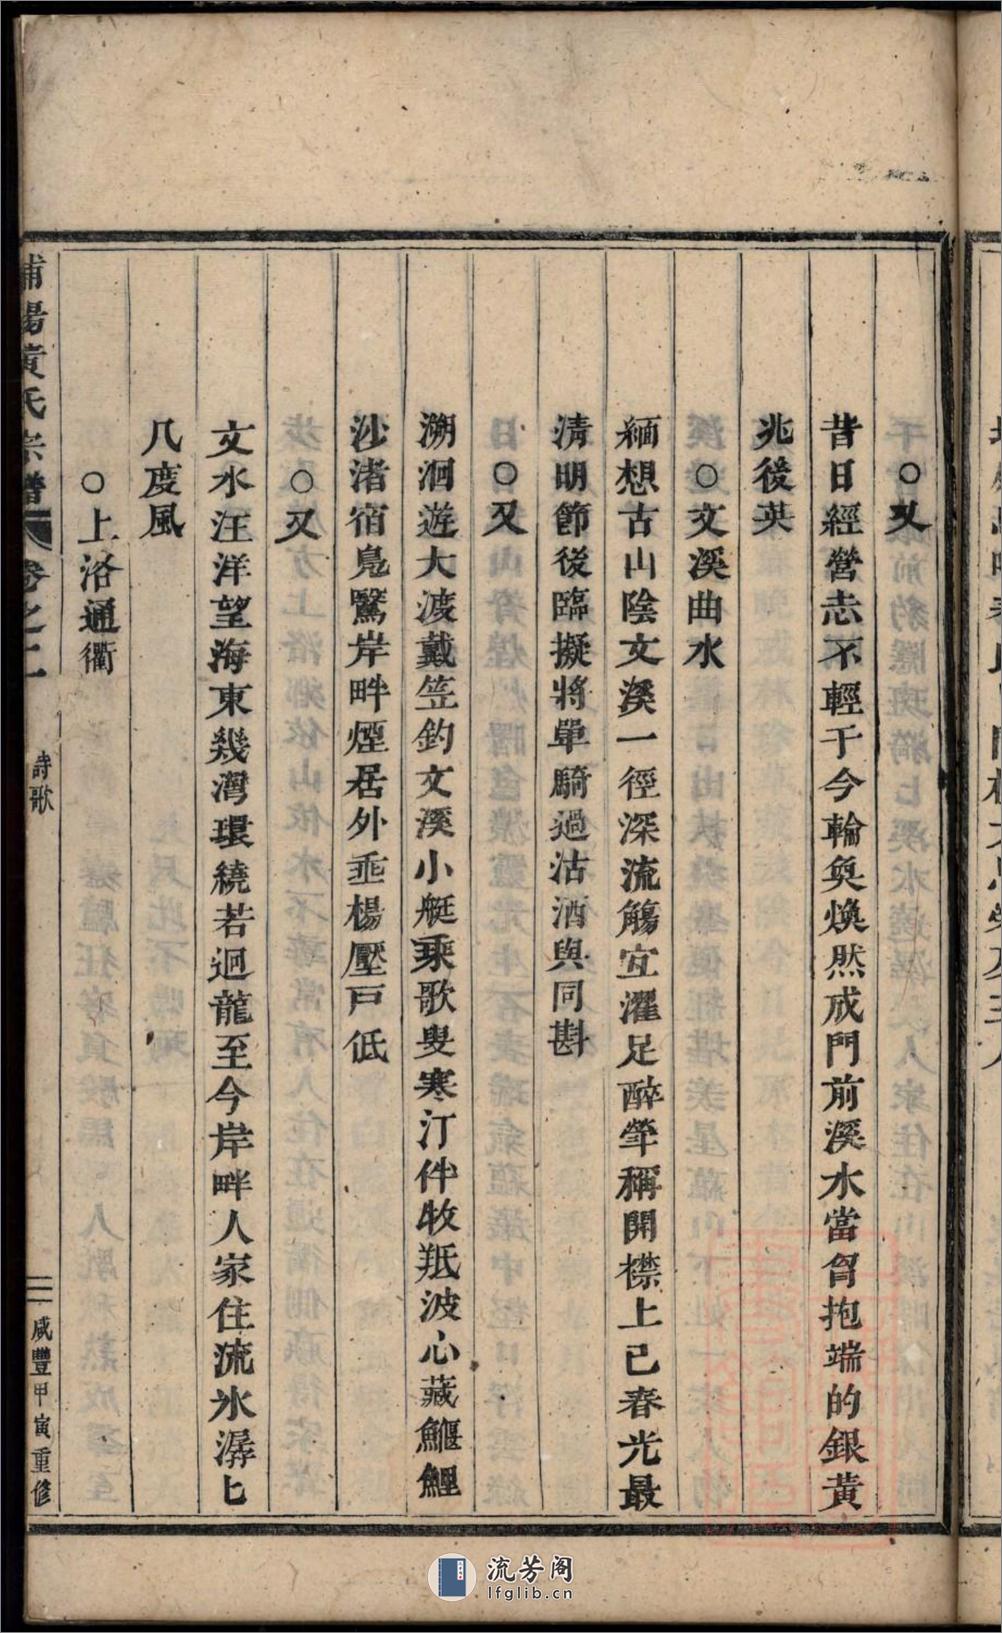 ○又
昔日經營志不輕于今輪奐煥然成門前溪水當胷抱端的銀黃
兆後英
○文溪曲水
緬想古山陰文溪一徑深流觴宜濯足醉犖稱開襟上已春光最
清明節後臨擬將單騎過沽酒與同斟
○又
溯洄遊大渡戴笠釣文溪小艇乘歌叟寒汀伴牧羝波心藏鰋鯉
沙渚宿鳧驚岸畔煙居外垂楊壓戸低
○又
文水汪洋望海東幾灣環繞若迴龍至今岸畔人家住流水潺匕
几度風
○上洛通衢
浦陽黃氏宗譜 卷之二 詩歌 二 咸豐甲寅重修
流芳阁
lfglib.cn